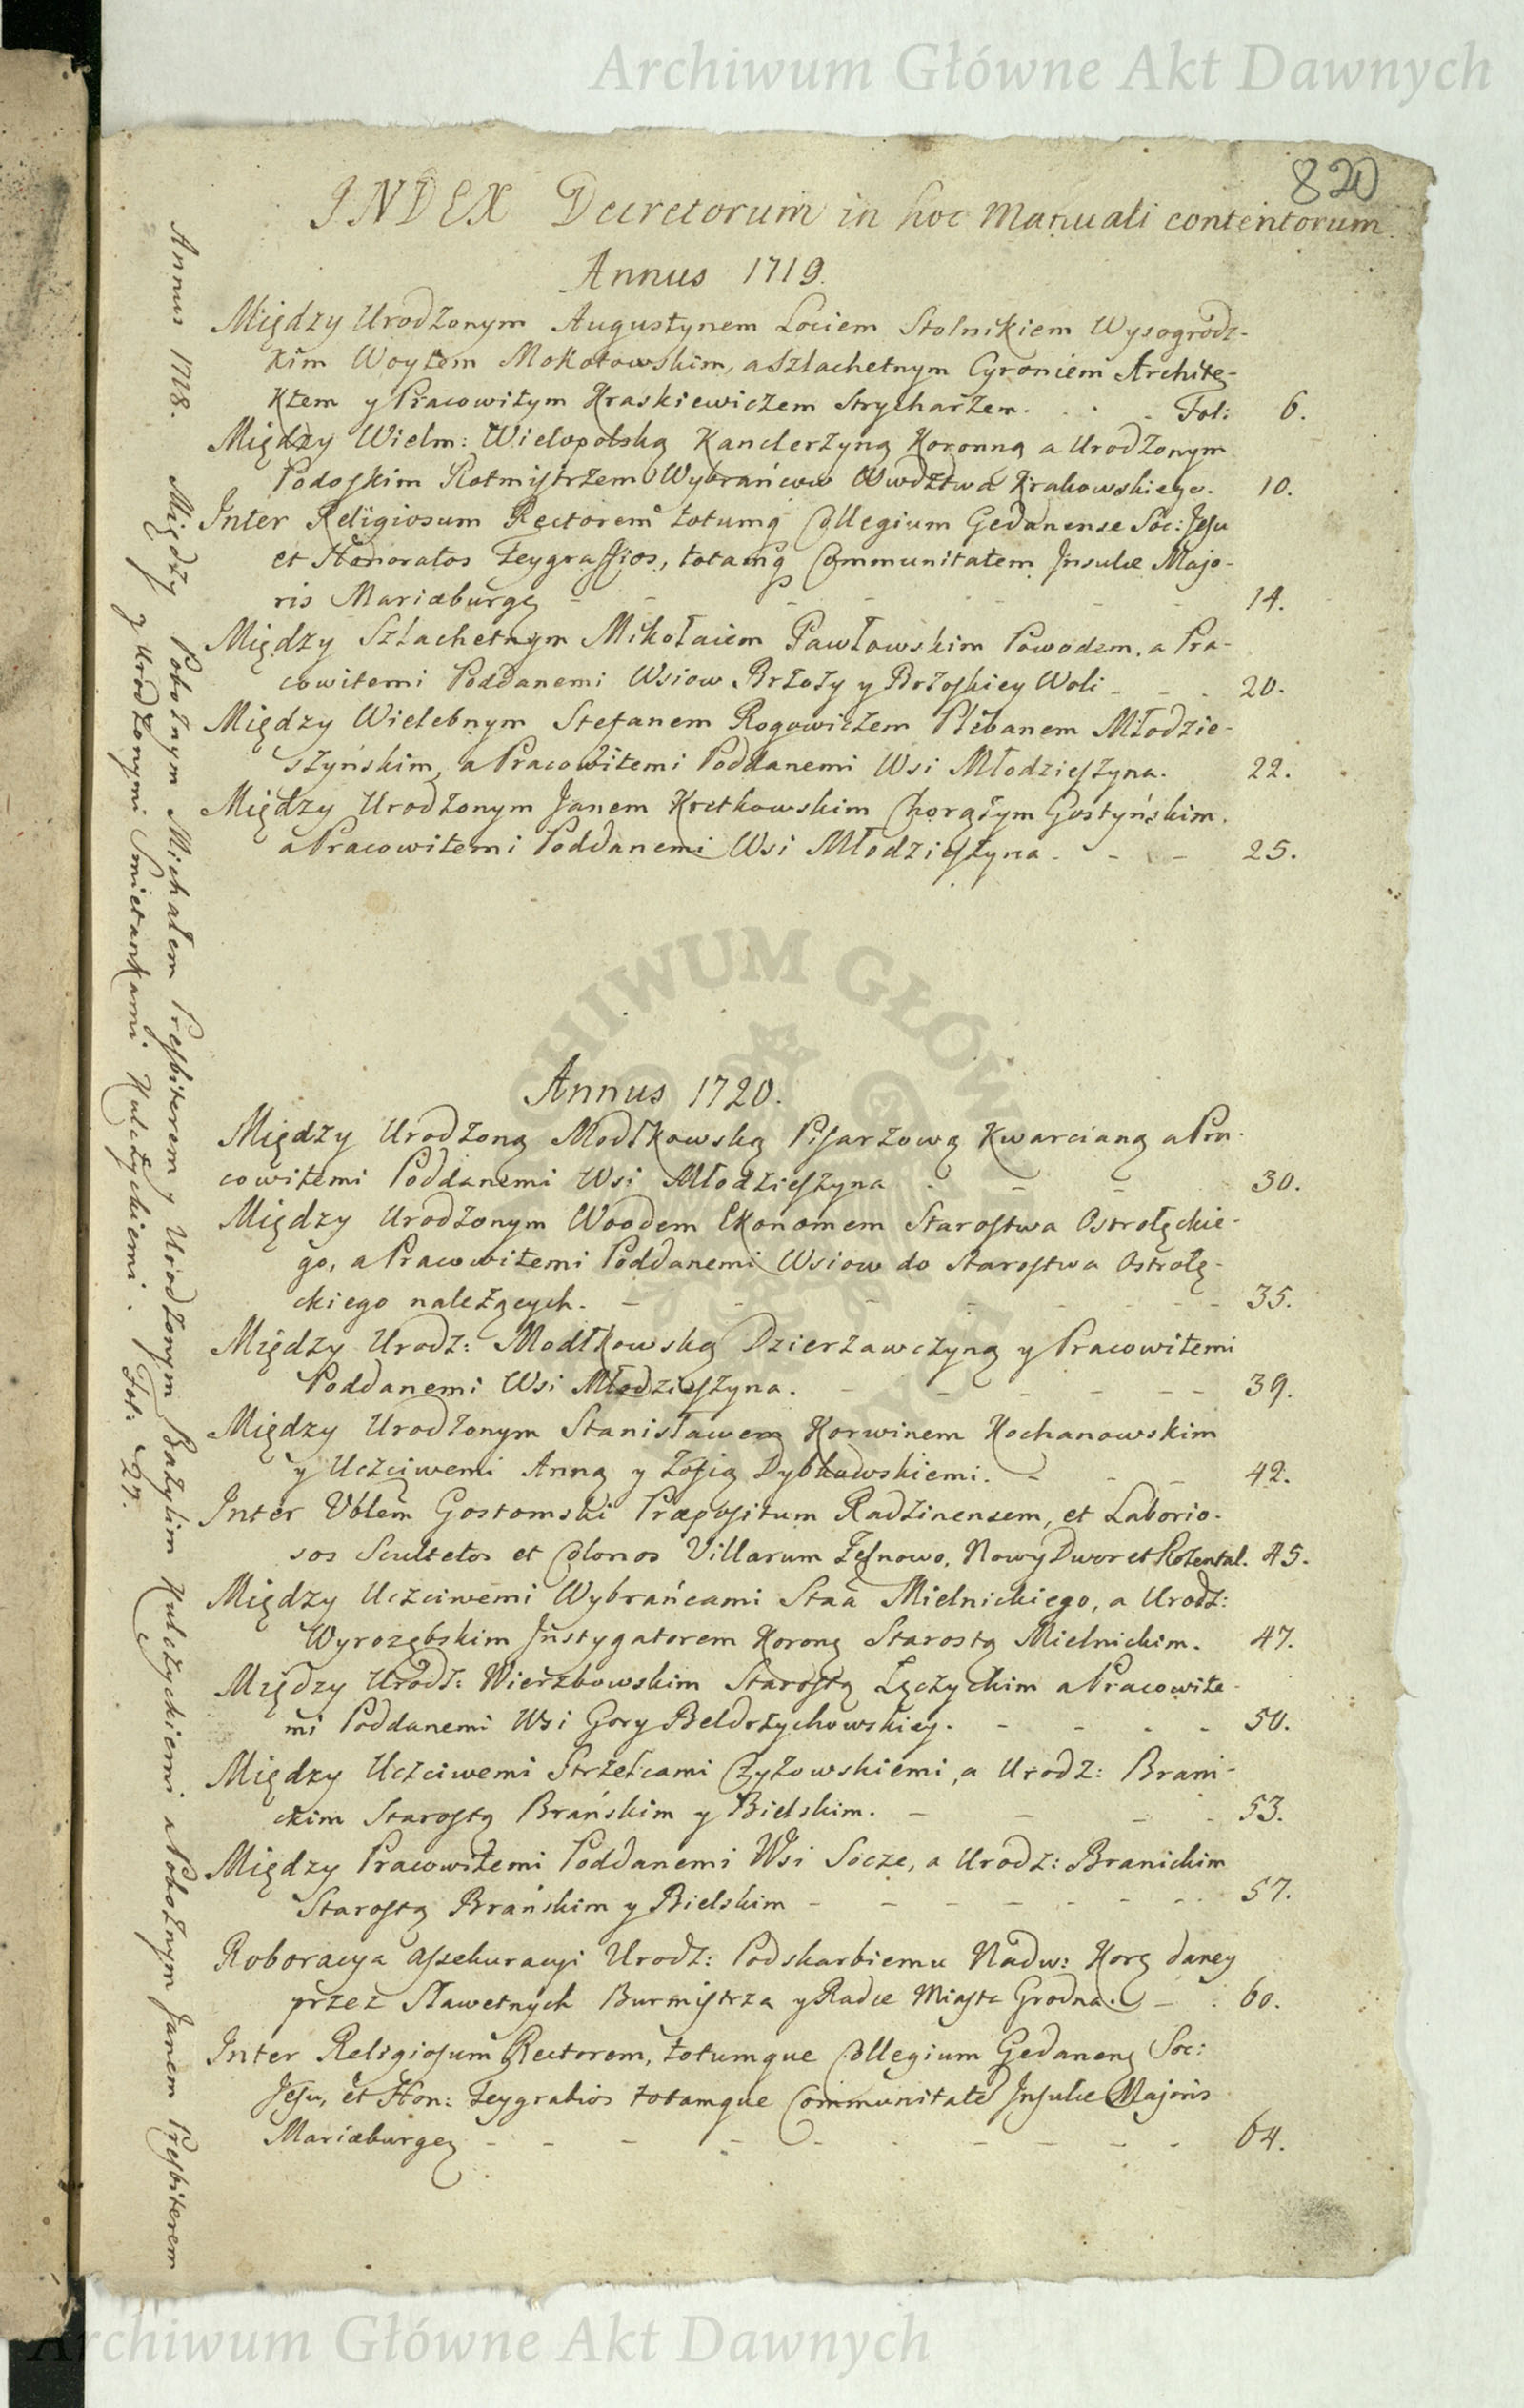 Archiwum Główne Akt Dawnych
820
INDEX Decretorum in hoc Manuali contentorum.
Annus 1719.
Między Urodzonym Augustynem Lociem Stolnikiem Wysogrodz-
kim Woytem Mokotowskim, a Szlachetnym Cyroniem Archite-
ktem y Pracowitym Kraskiewiczem Strycharzem. Fol: 6.
Między Wielm: Wielopolską Kanclerzyną Koronną a Urodzonym
Podoskim Rotmistrzem Wybrańcow Wwdztwa Krakowskiego. 10.
Inter Religiosum Rectorem totumq Collegium Gedanense Soc: Jesu
et Honoratos Teygraffios, totamq Communitatem Insulæ Majo-
ris Mariæburgę 14.
Między Szlachetnym Mikołaiem Pawłowskim Powodem, a Pra-
cowitemi Poddanemi Wsiow Brzozy y Brzoskiey Woli 20.
Między Wielebnym Stefanem Rogowiczem Plebanem Młodzie-
szyńskim, a Pracowitemi Poddanemi Wsi Młodzieszyna. 22.
Między Urodzonym Janem Kretkowskim Chorążym Gostyńskim.
a Pracowitemi Poddanemi Wsi Młodzieszyna. 25.
Annus 1720.
Między Urodzoną Modłkowską Pisarzową Kwarcianą a Pra-
cowitemi Poddanemi Wsi Młodzieszyna 30.
Między Urodzonym Woodem Ekonomem Starostwa Ostrołęckie-
go, a Pracowitemi Poddanemi Wsiow do Starostwa Ostrołę-
ckiego należących. 35.
Między Urodz: Modłkowską Dzierzawczyną y Pracowitemi
Poddanemi Wsi Młodzieszyna. 39.
Między Urodzonym Stanisławem Korwinem Kochanowskim
y Uczciwemi Anną y Zofią Dybkowskiemi. 42.
Inter Vblem Gostomski Præpositum Radzinensem, et Laborio-
sos Scultetos et Colonos Villarum Zęsnowo, Nowy Dwor et Rozental. 45.
Między Uczciwemi Wybrańcami Staa Mielnickiego, a Urodz:
Wyrozębskim Instygatorem Korong Starostą Mielnickim. 47.
Między Urodz: Wierzbowskim Starostą Łęczyckim a Pracowite-
mi Poddanemi Wsi Gory Beldrzychowskiey. 50.
Między Uczciwemi Strzelcami Czyzowskiemi, a Urodz: Brani-
ckim Starostą Brańskim y Bielskim. 53.
Między Pracowitemi Poddanemi Wsi Socze, a Urodz: Branickim
Starostą Brańskim y Bielskim 57.
Roboracya assekuracyi Urodz: Podskarbiemu Nadw: Korg daney
przez Sławetnych Burmistrza y Radce Miasta Grodna. 60.
Inter Religiosum Rectorem, totumque Collegium Gedaneng Soc:
Jesu, et Hon: Teygrabios totamque Communitate Insulæ Majoris
Mariæburgeg 64.
Annus 1718. Między Pobożnym Michałem Presbiterem y Urodzonym Bazylim Kulczyckiemi a Pobożnym Janem Presbiterem
y Urodzonymi Smietankami Kulczyckiemi. Fol: 27.
ARCHIWUM GŁÓWNE AKT DAWNYCH
Archiwum Główne Akt Dawnych